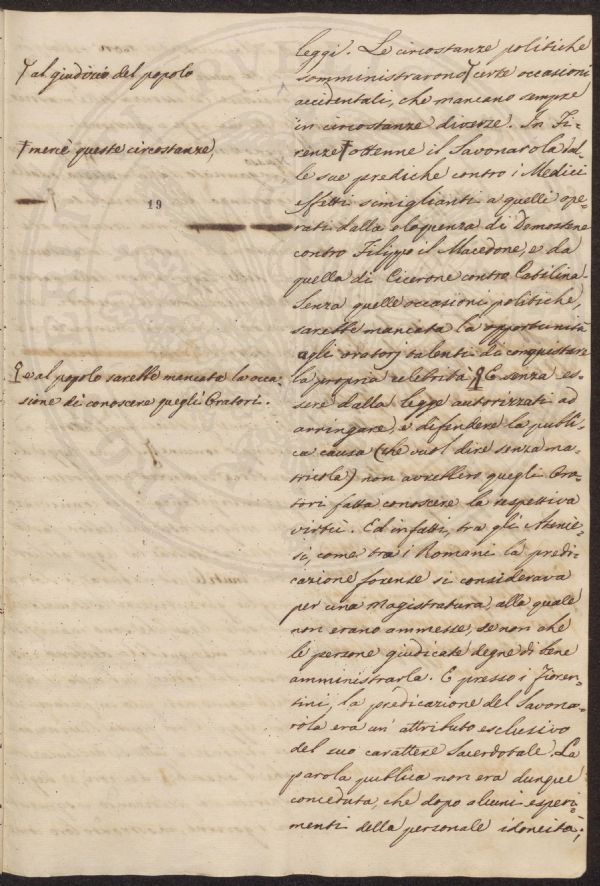 leggi. Le circostanze politiche
somministrarono certe occasioni
accidentali, che mancano sempre
in circostanze diverze. In Fi-
renze ottenne il Savonarola dal-
le sue prediche contro i Medici
effetti simiglianti a quelli ope-
rati dalla eloquenza di Demostene
contro Filippo il Macedone, e da
quella di Cicerone contro Catilina.
Senza quelle occasioni politiche,
sarebbe mancata la opportunità
agli oratorj talenti di conquistare
la propria celebrità. E senza es-
sere dalla legge autorizzati ad
arringare, e difendere la publi-
ca causa (che vuol dire senza ma-
tricola) non avrebbero quegli Ora-
tori fatta conoscere la respettiva
virtù. Ed infatti, tra gli Atenie-
si, come tra i Romani la predi-
cazione forense si considerava
per una Magistratura, alla quale
non erano ammesse, se non che
le persone giudicate degne di bene
amministrarla. E presso i Fioren-
tini, la predicazione del Savona-
rola era un' attributo esclusivo
del suo carattere Sacerdotale. La
parola publica non era dunque
conceduta, che dopo alcuni esperi-
menti della personale idoneità;
al giudizio del popolo
mercè queste circostanze,
19
e al popolo sarebbe mancata la occa-
sione di conoscere quegli Oratori.